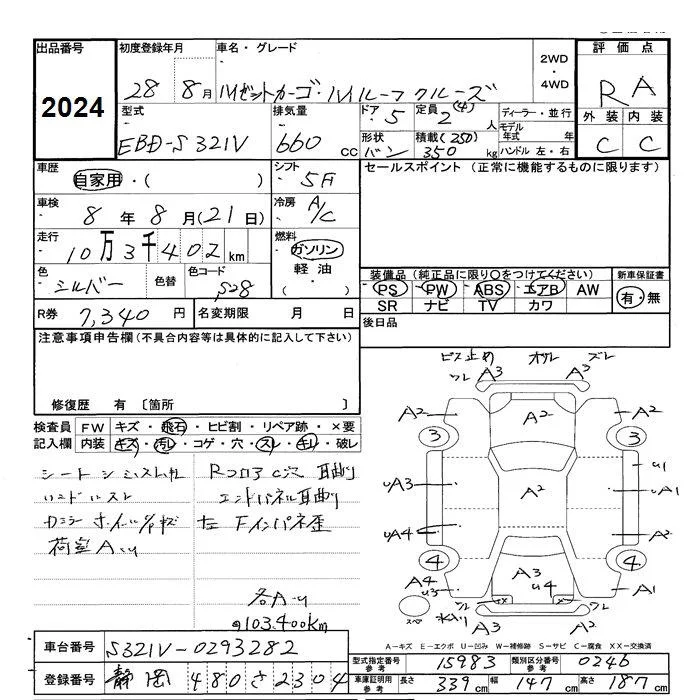 出品番号 初度登録年月 車名・グレード 2WD・4WD 評価点
2024 28 8月 ハイゼットカーゴ・ハイルーフ クルーズ RA
型式 排気量 ドア 定員 ディーラー・並行 外装 内装
EBD-S321V 660 cc 5 2 (4) 人 モデル年式 年 C C
形状 バン 積載 (250) 350 kg ハンドル 左・右
車歴 自家用・( ) シフト 5F セールスポイント (正常に機能するものに限ります)
車検 8 年 8 月 (21 日) 冷房 A/C
走行 10万3千402 km 燃料 ガソリン 軽油 ・( )
色 シルバー 色替 色コード S28
装備品 (純正品に限り○をつけてください) 新車保証書
PS PW ABS エアB AW 有・無
SR ナビ TV カワ
R券 7,340 円 名変期限 月 日 後日品
注意事項申告欄(不具合内容等は具体的に記入して下さい)
修復歴 有 〔箇所 〕
検査員記入欄 FW キズ・飛石・ヒビ割・リペア跡・×要
内装 キズ・汚レ・コゲ・穴・スレ・キレ・破レ
荷室Au
エンドパネル 曲り
Fインパネ歪
各A-u
@103,400km
ビス止め ズレ
A3 A3
A2 A2 A2
3 3
uA3 A2 u1 uA1
uA4 A2
4 4
A4 u3 A3 u4 A1
A-キズ E-エクボ U-凹み W-補修跡 S-サビ C-腐食 XX-交換済
車台番号 S321V-0293282
登録番号 静岡 480 さ 2304
型式指定番号 参考 15983 類別区分番号 参考 0246
車庫証明用 参考 長さ 339 cm 幅 147 cm 高さ 187 cm